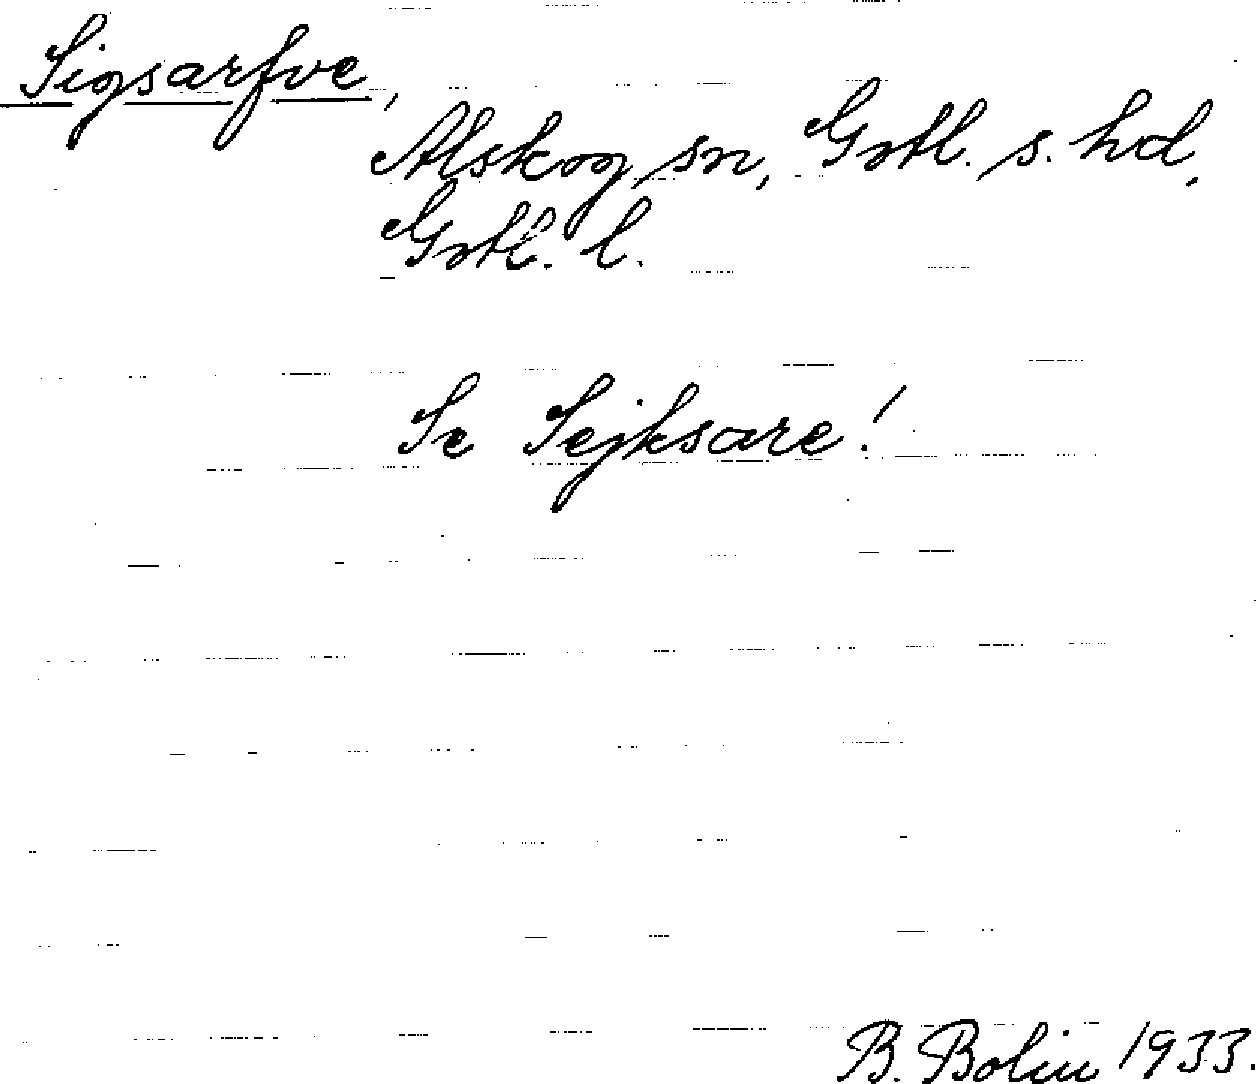 Sigsarfve,
Alskog sn, Gotl. s. hd,
Gotl. l.
Se Sejksare!
B. Bolin 1933.